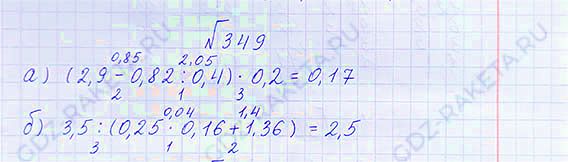 √349
0,85 2,05
а) (2,9 - 0,82 : 0,4) · 0,2 = 0,17
2 1 3
0,04 1,4
б) 3,5 : (0,25 · 0,16 + 1,36) = 2,5
3 1 2
GDZ-RAKETA.RU
GDZ-RAKETA.RU
GDZ-RAKETA.RU